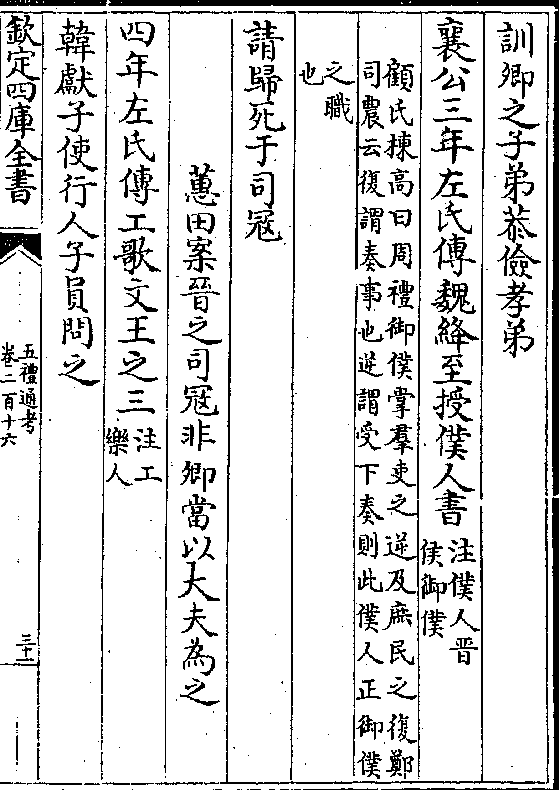 訓卿之子弟恭儉孝弟
襄公三年左氏傳魏絳至授僕人書
注僕人晉
侯御僕
顧氏棟高曰周禮御僕掌羣吏之逆及庶民之復鄭
司農云復謂奏事也逆謂受下奏則此僕人正御僕
之職
也
請歸死于司寇
蕙田案晉之司冦非卿當以大夫為之
四年左氏傳工歌文王之三
注工
樂人
韓獻子使行人子員問之
欽定四庫全書
五禮通考
卷二百十六
三十一